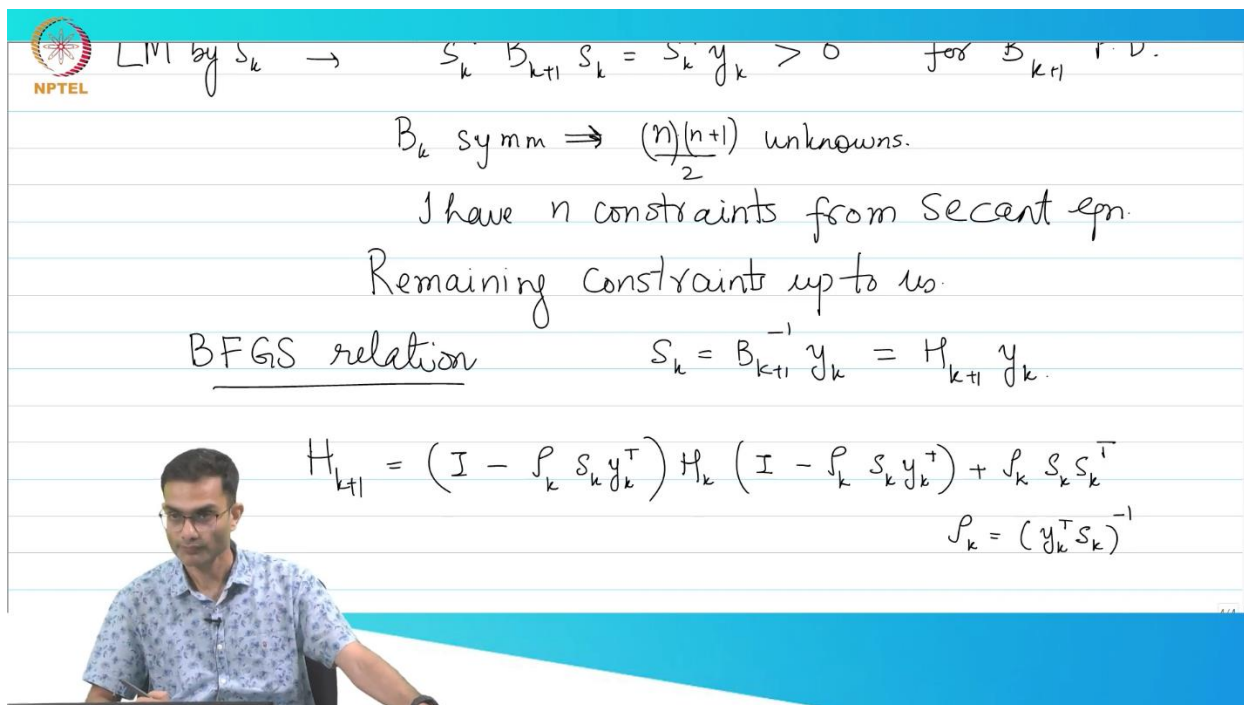 LM by s_k → s_k^T B_{k+1} s_k = s_k^T y_k > 0 for B_{k+1} P.D.
NPTEL
B_k symm ⇒ (n)(n+1)/2 unknowns.
I have n constraints from secant eqn.
Remaining constraints up to us.
BFGS relation s_k = B_{k+1}^{-1} y_k = H_{k+1} y_k.
H_{k+1} = (I - ρ_k s_k y_k^T) H_k (I - ρ_k s_k y_k^T) + ρ_k s_k s_k^T
ρ_k = (y_k^T s_k)^{-1}